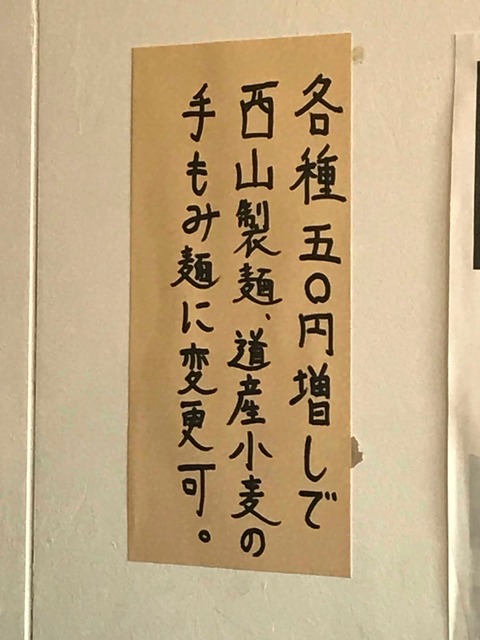 各種五〇円増しで
西山製麺、道産小麦の
手もみ麺に変更可。